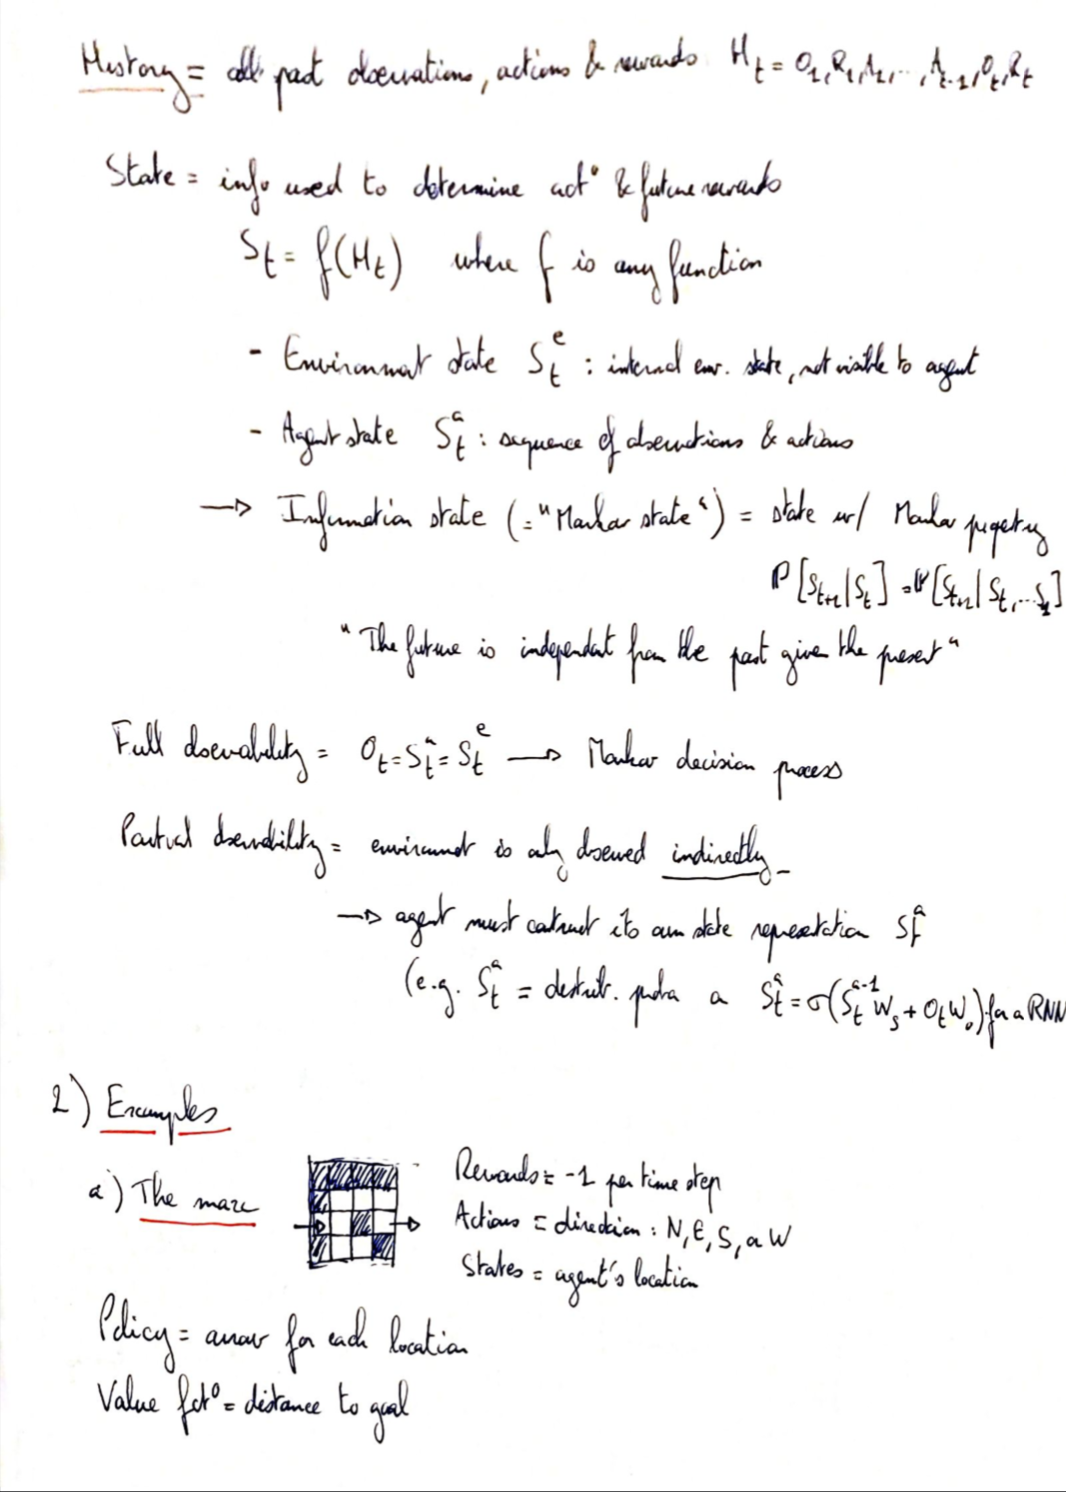 History = all past observations, actions & rewards. H_t = O_1, R_1, A_1, ..., A_{t-1}, O_t, R_t
State = info used to determine act° & future rewards
S_t = f(H_t) where f is any function
- Environment state S_t^e : internal env. state, not visible to agent
- Agent state S_t^a : sequence of observations & actions
→ Information state (="Markov state") = state w/ Markov property
P[S_{t+1} | S_t] = P[S_{t+1} | S_t, ... S_1]
"The future is independent from the past given the present"
Full observability = O_t = S_t^a = S_t^e → Markov decision process
Partial observability = environment is only observed indirectly
→ agent must construct its own state representation S_t^a
(e.g. S_t^a = distrib. proba or S_t^a = σ(S_t^{a-1} W_s + O_t W_o) for a RNN
2) Examples
a) The maze
Rewards = -1 per time step
Actions = direction : N, E, S, or W
States = agent's location
Policy = arrow for each location
Value fct° = distance to goal